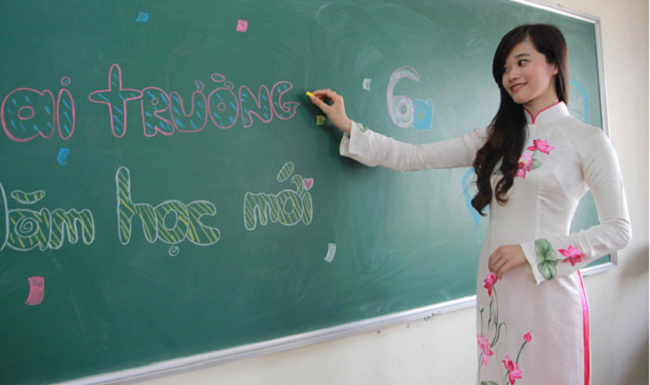 ai trường 6
ăm học mới